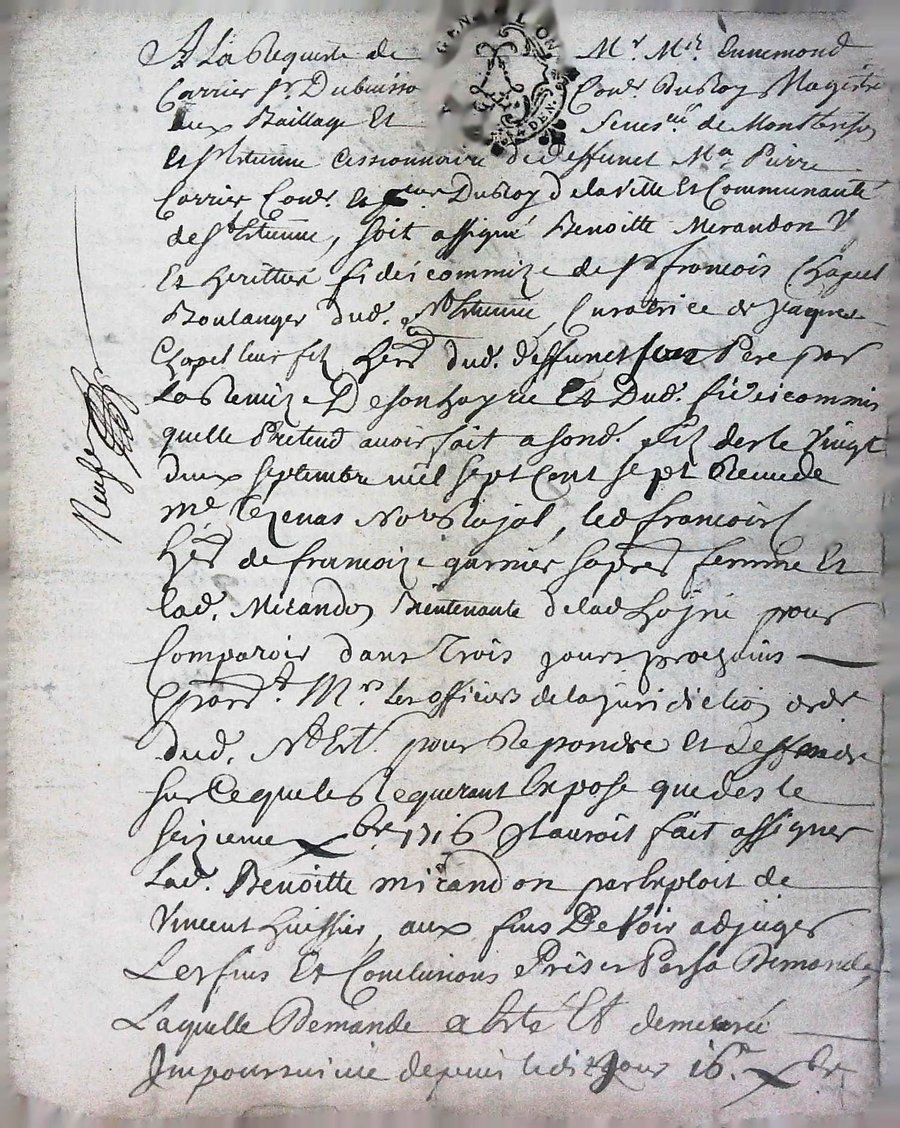 A La Requeste de Mr. Mre. Ennemond
Carrier Sr. Dubuisso Coner. Du Roy Magistre
aux Baillage Et Senesee. de Montbrison
et St. Etienne Cessionnaire de deffunct Me Pierre
Carrier Coner. et Du Roy de la ville Et Communauté
de St. Etienne, soit assigné Benoitte Merandon V
Et heritiere fideicommize de Sr francois Chapel
Boulanger dud. St Etienne, Curatrice de Jacque
Chapel leur fils herer dud. deffunct son Pere par
La Remize De son hoyrie Et Dud. fideicommis
quelle Pretend avoir fait a sond. fils des le Vingt
deux septembre mil sept Cent sept Receu de
me Nore Royal, led francois
hers de francoize garnier sa pre femme Et
lad. Merandon Bientenante de lad hoyrie pour
Comparoir dans Trois jours prochains
pard.t Mrs Les officiers de la juridiction ordre
dud. St Ete. pour Repondre et deffendre
sur Ce que le Requerant Expose que des le
seizieme Xbre. 1716 Il auroit fait assigner
Lad. Benoitte mirandon par Exploit de
Vincent huissier, aux fins De Voir adjuger
Les fins Et Conclusions Prises Par sa Demande,
Laquelle Demande a Esté Et demeuré
Impoursuivie depuis ledit Jour 16e. Xbre